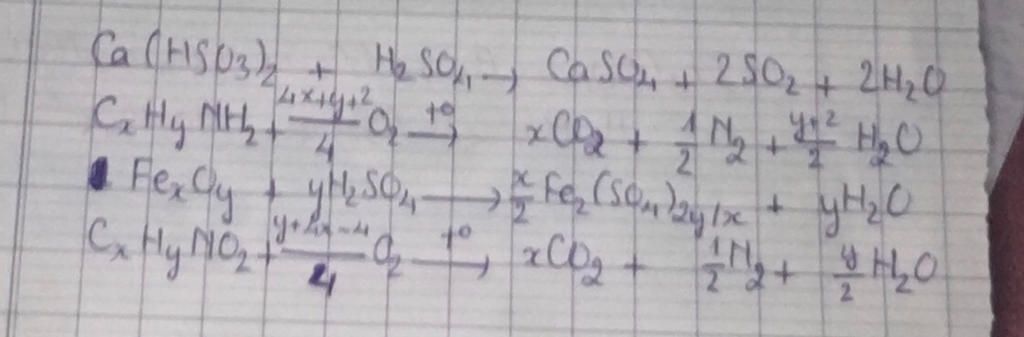 Ca(HSO₃)₂ + H₂SO₄ → CaSO₄ + 2SO₂ + 2H₂O
CₓHᵧNH₂ + (4x+y+2)/4 O₂ →(t°) xCO₂ + 1/2 N₂ + (y+2)/2 H₂O
FeₓOᵧ + yH₂SO₄ → x/2 Fe₂(SO₄)₂y/x + yH₂O
CₓHᵧNO₂ + (y+4x-4)/4 O₂ →(t°) xCO₂ + 1/2 N₂ + y/2 H₂O